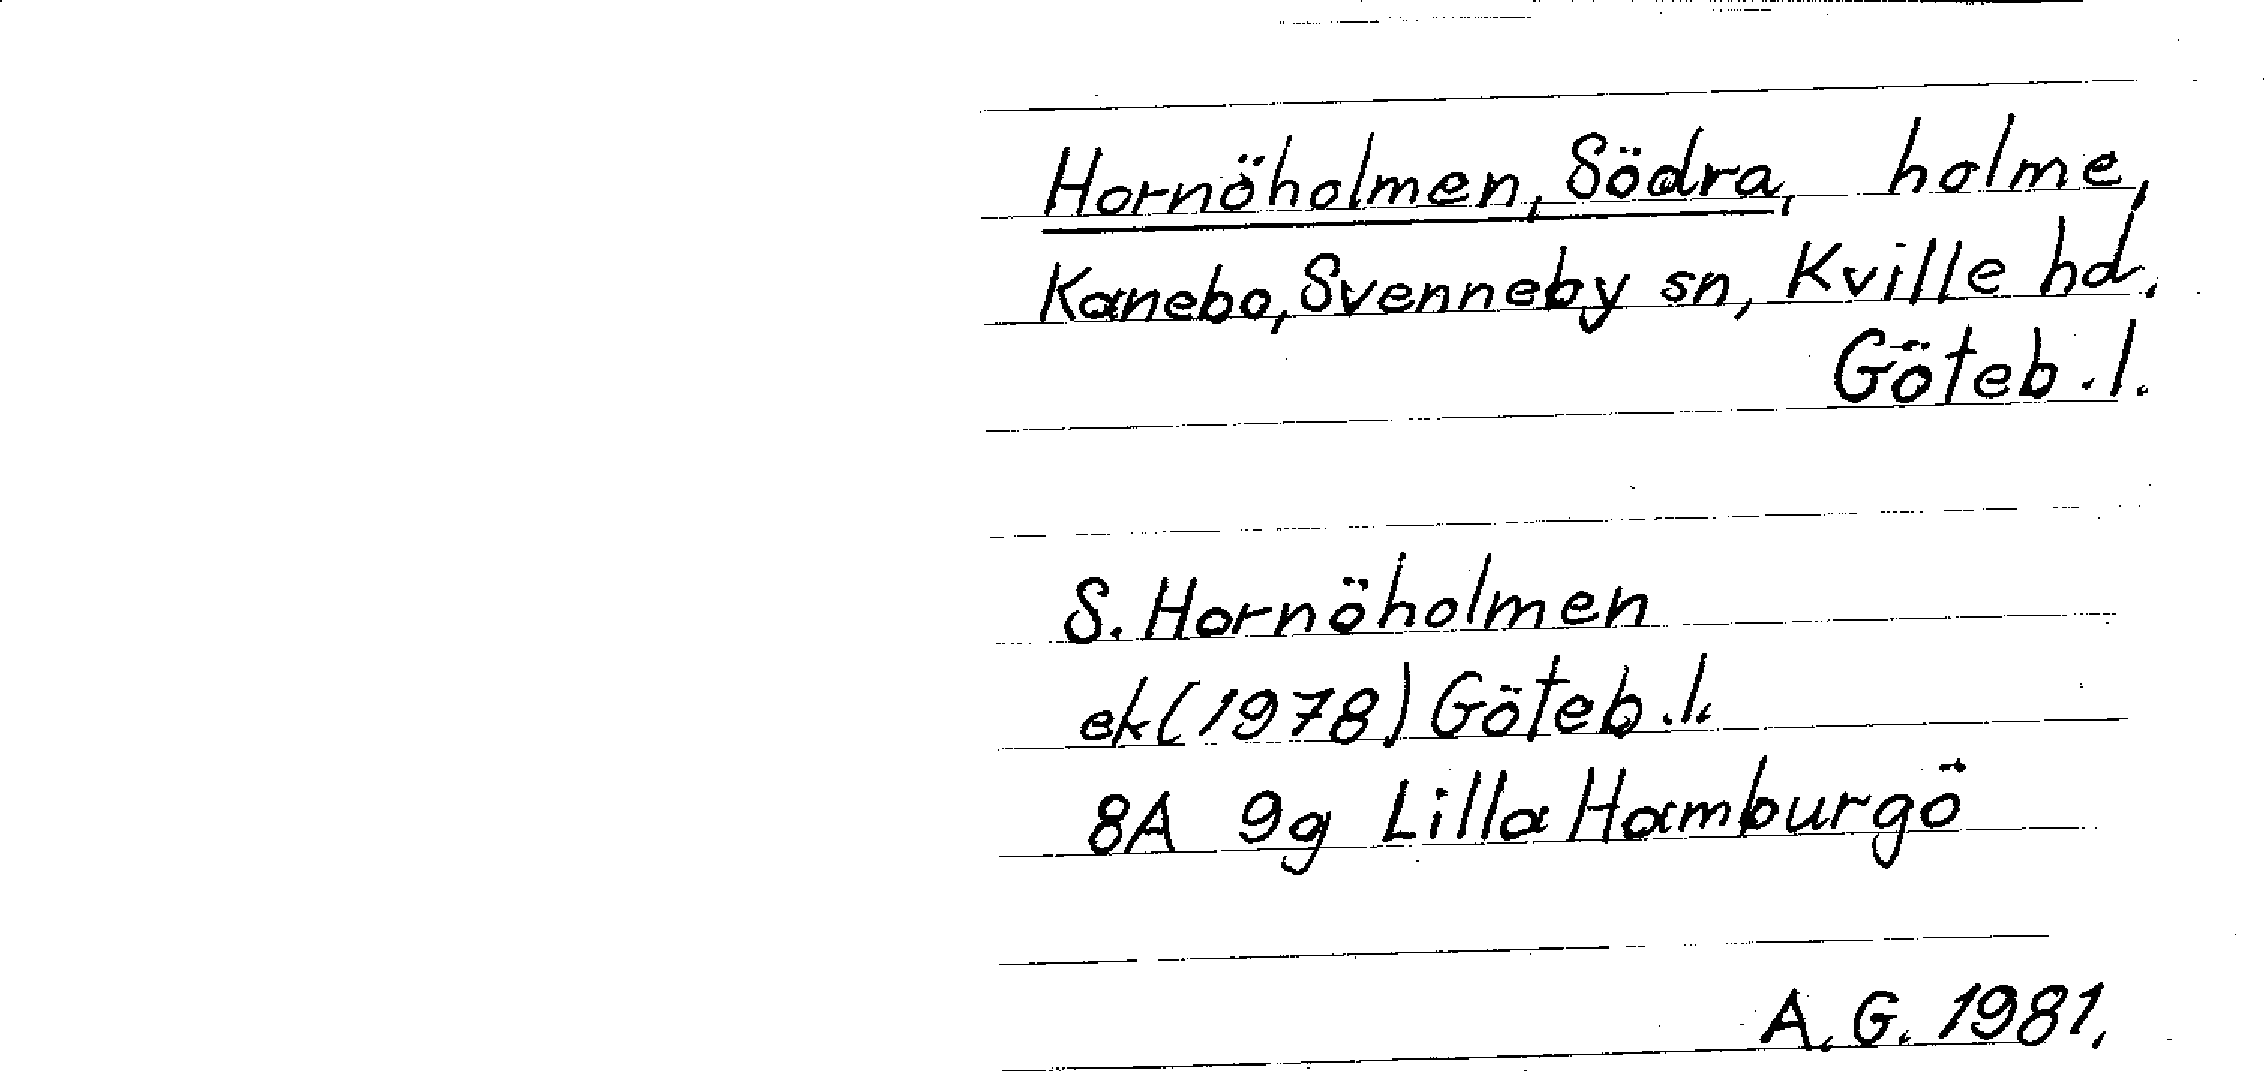 Hornöholmen, Södra, holme,
Kanebo, Svenneby sn, Kville hd.
Göteb.l.
S. Hornöholmen
ek (1978) Göteb.l.
8A 9g Lilla Hamburgö
A.G. 1981.